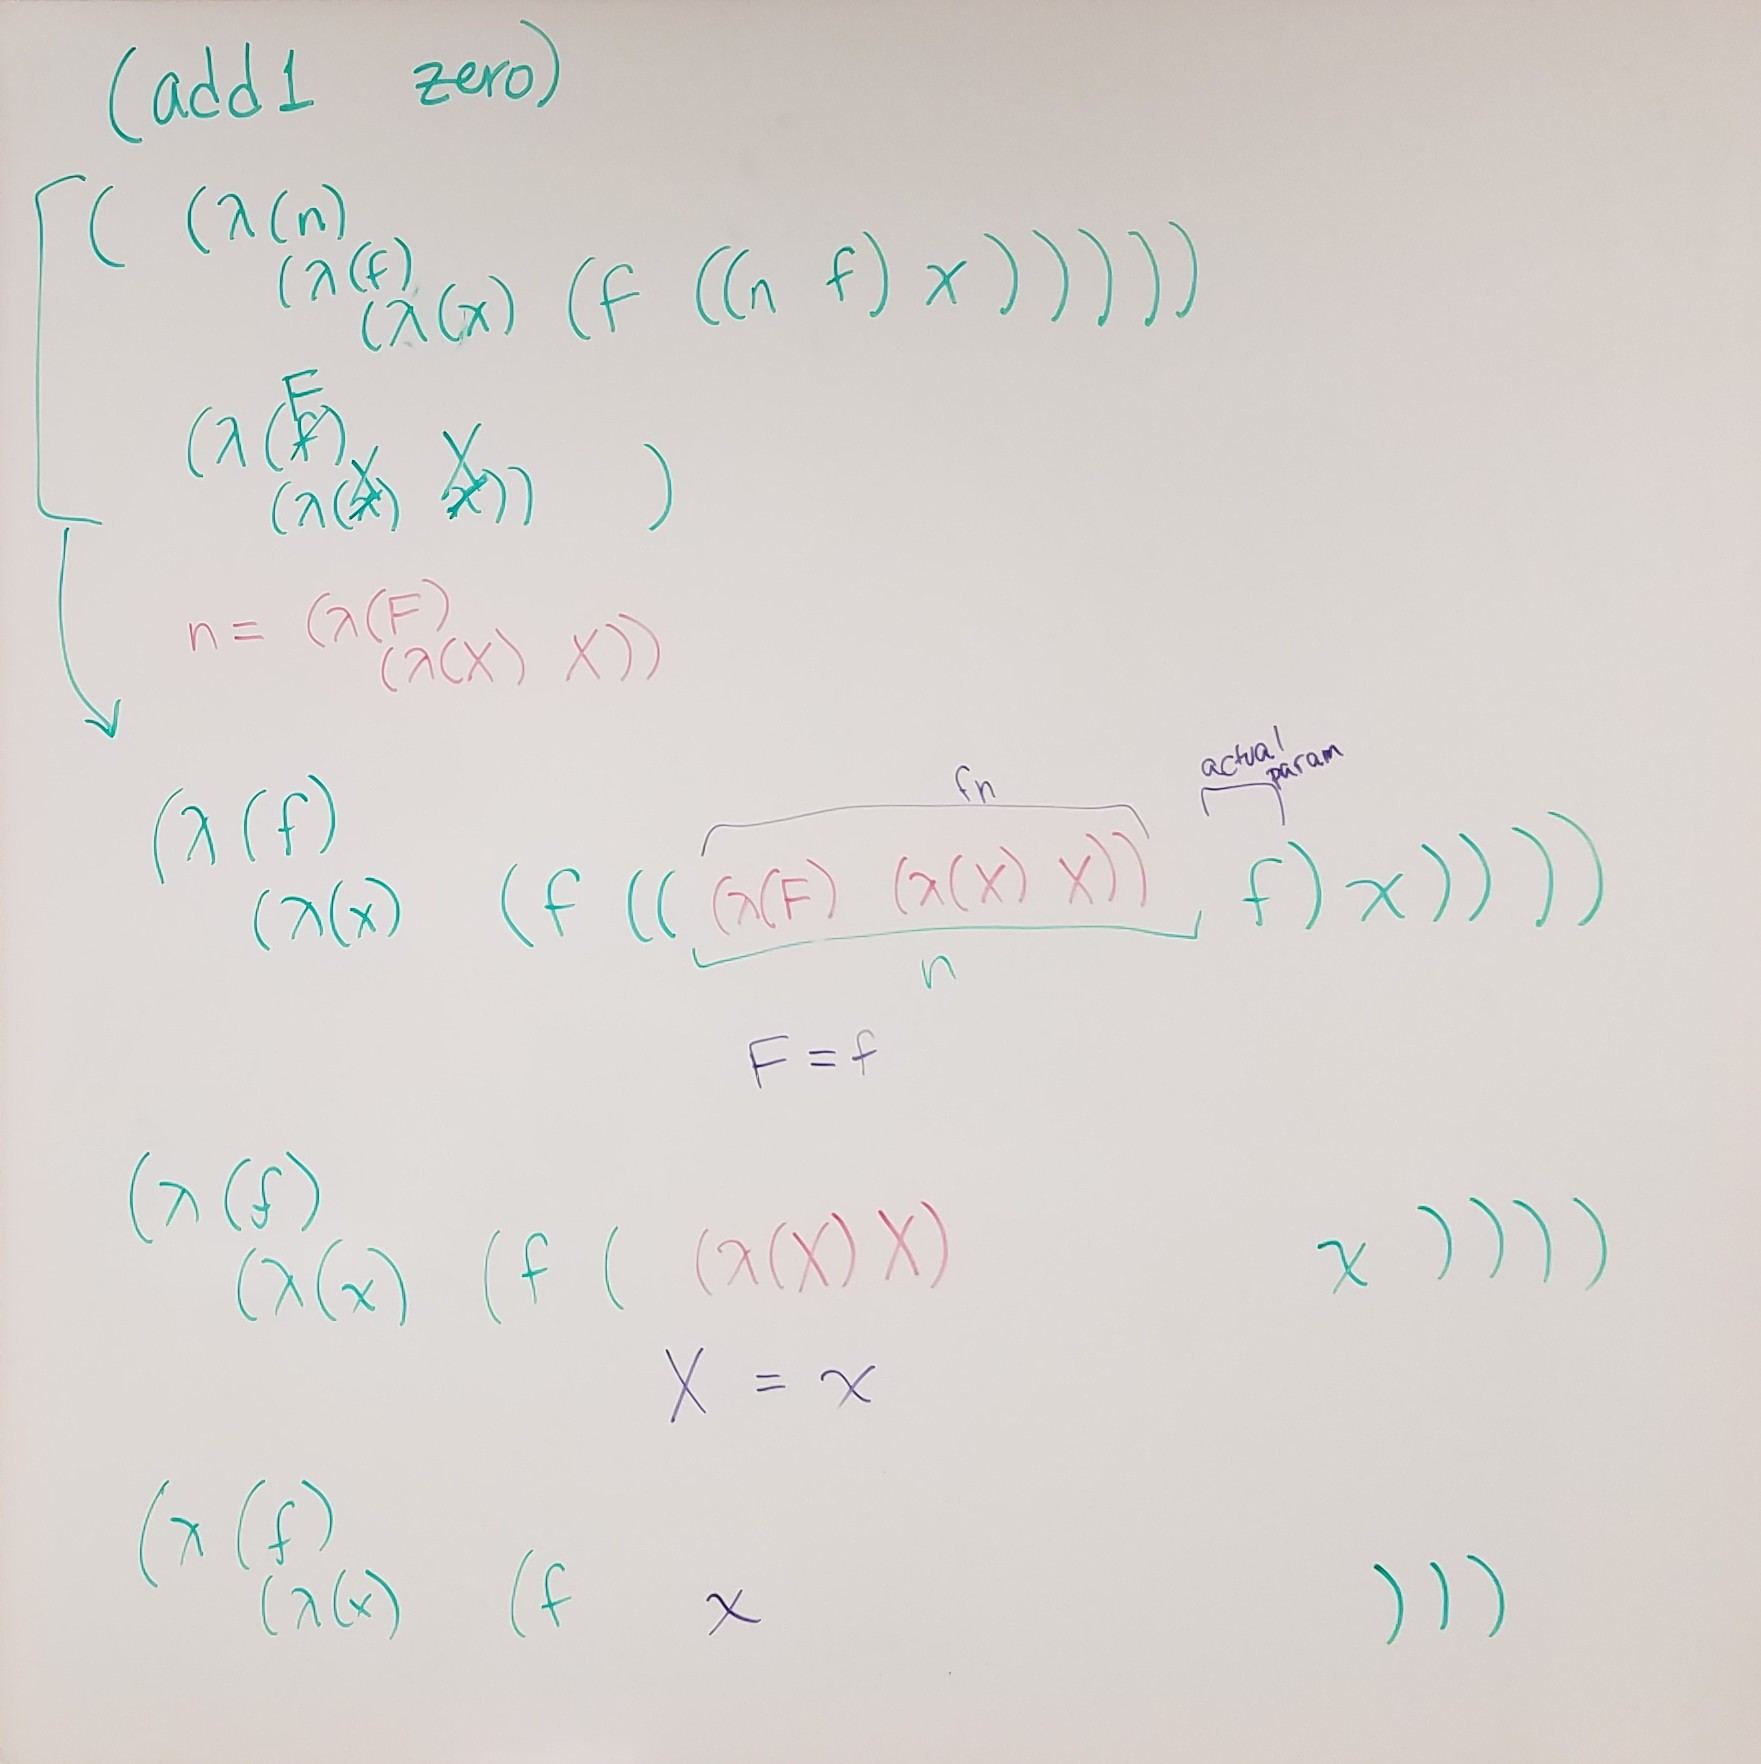 (add1 zero)
( (λ(n)
(λ(f)
(λ(x) (f ((n f) x))))))
F
(λ(f)
X X
(λ(x) x)) )
n = (λ(F)
(λ(X) X))
actual
param
fn
(λ(f)
(λ(x) (f (( (λ(F) (λ(X) X)) f) x))))
n
F = f
(λ(f)
(λ(x) (f ( (λ(X) X) x))))
X = x
(λ(f)
(λ(x) (f x )))